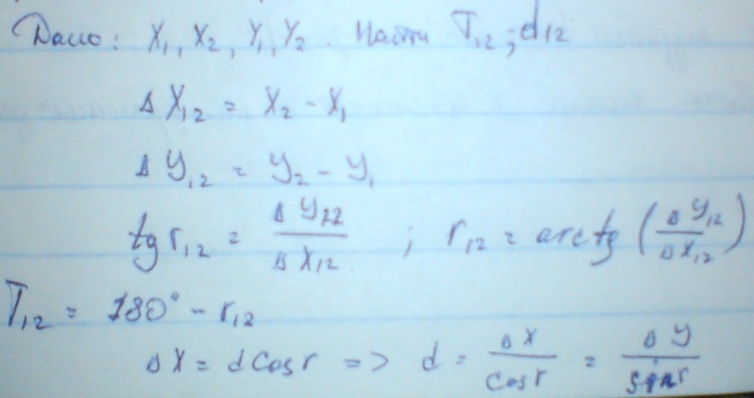 Дано: X₁, X₂, Y₁, Y₂. Найти T₁₂; d₁₂
Δ X₁₂ = X₂ - X₁
Δ Y₁₂ = Y₂ - Y₁
tg r₁₂ = Δ Y₁₂ / Δ X₁₂ ; r₁₂ = arctg (Δ Y₁₂ / Δ X₁₂)
T₁₂ = 180° - r₁₂
Δ X = d cos r => d = Δ X / cos r = Δ Y / sin r